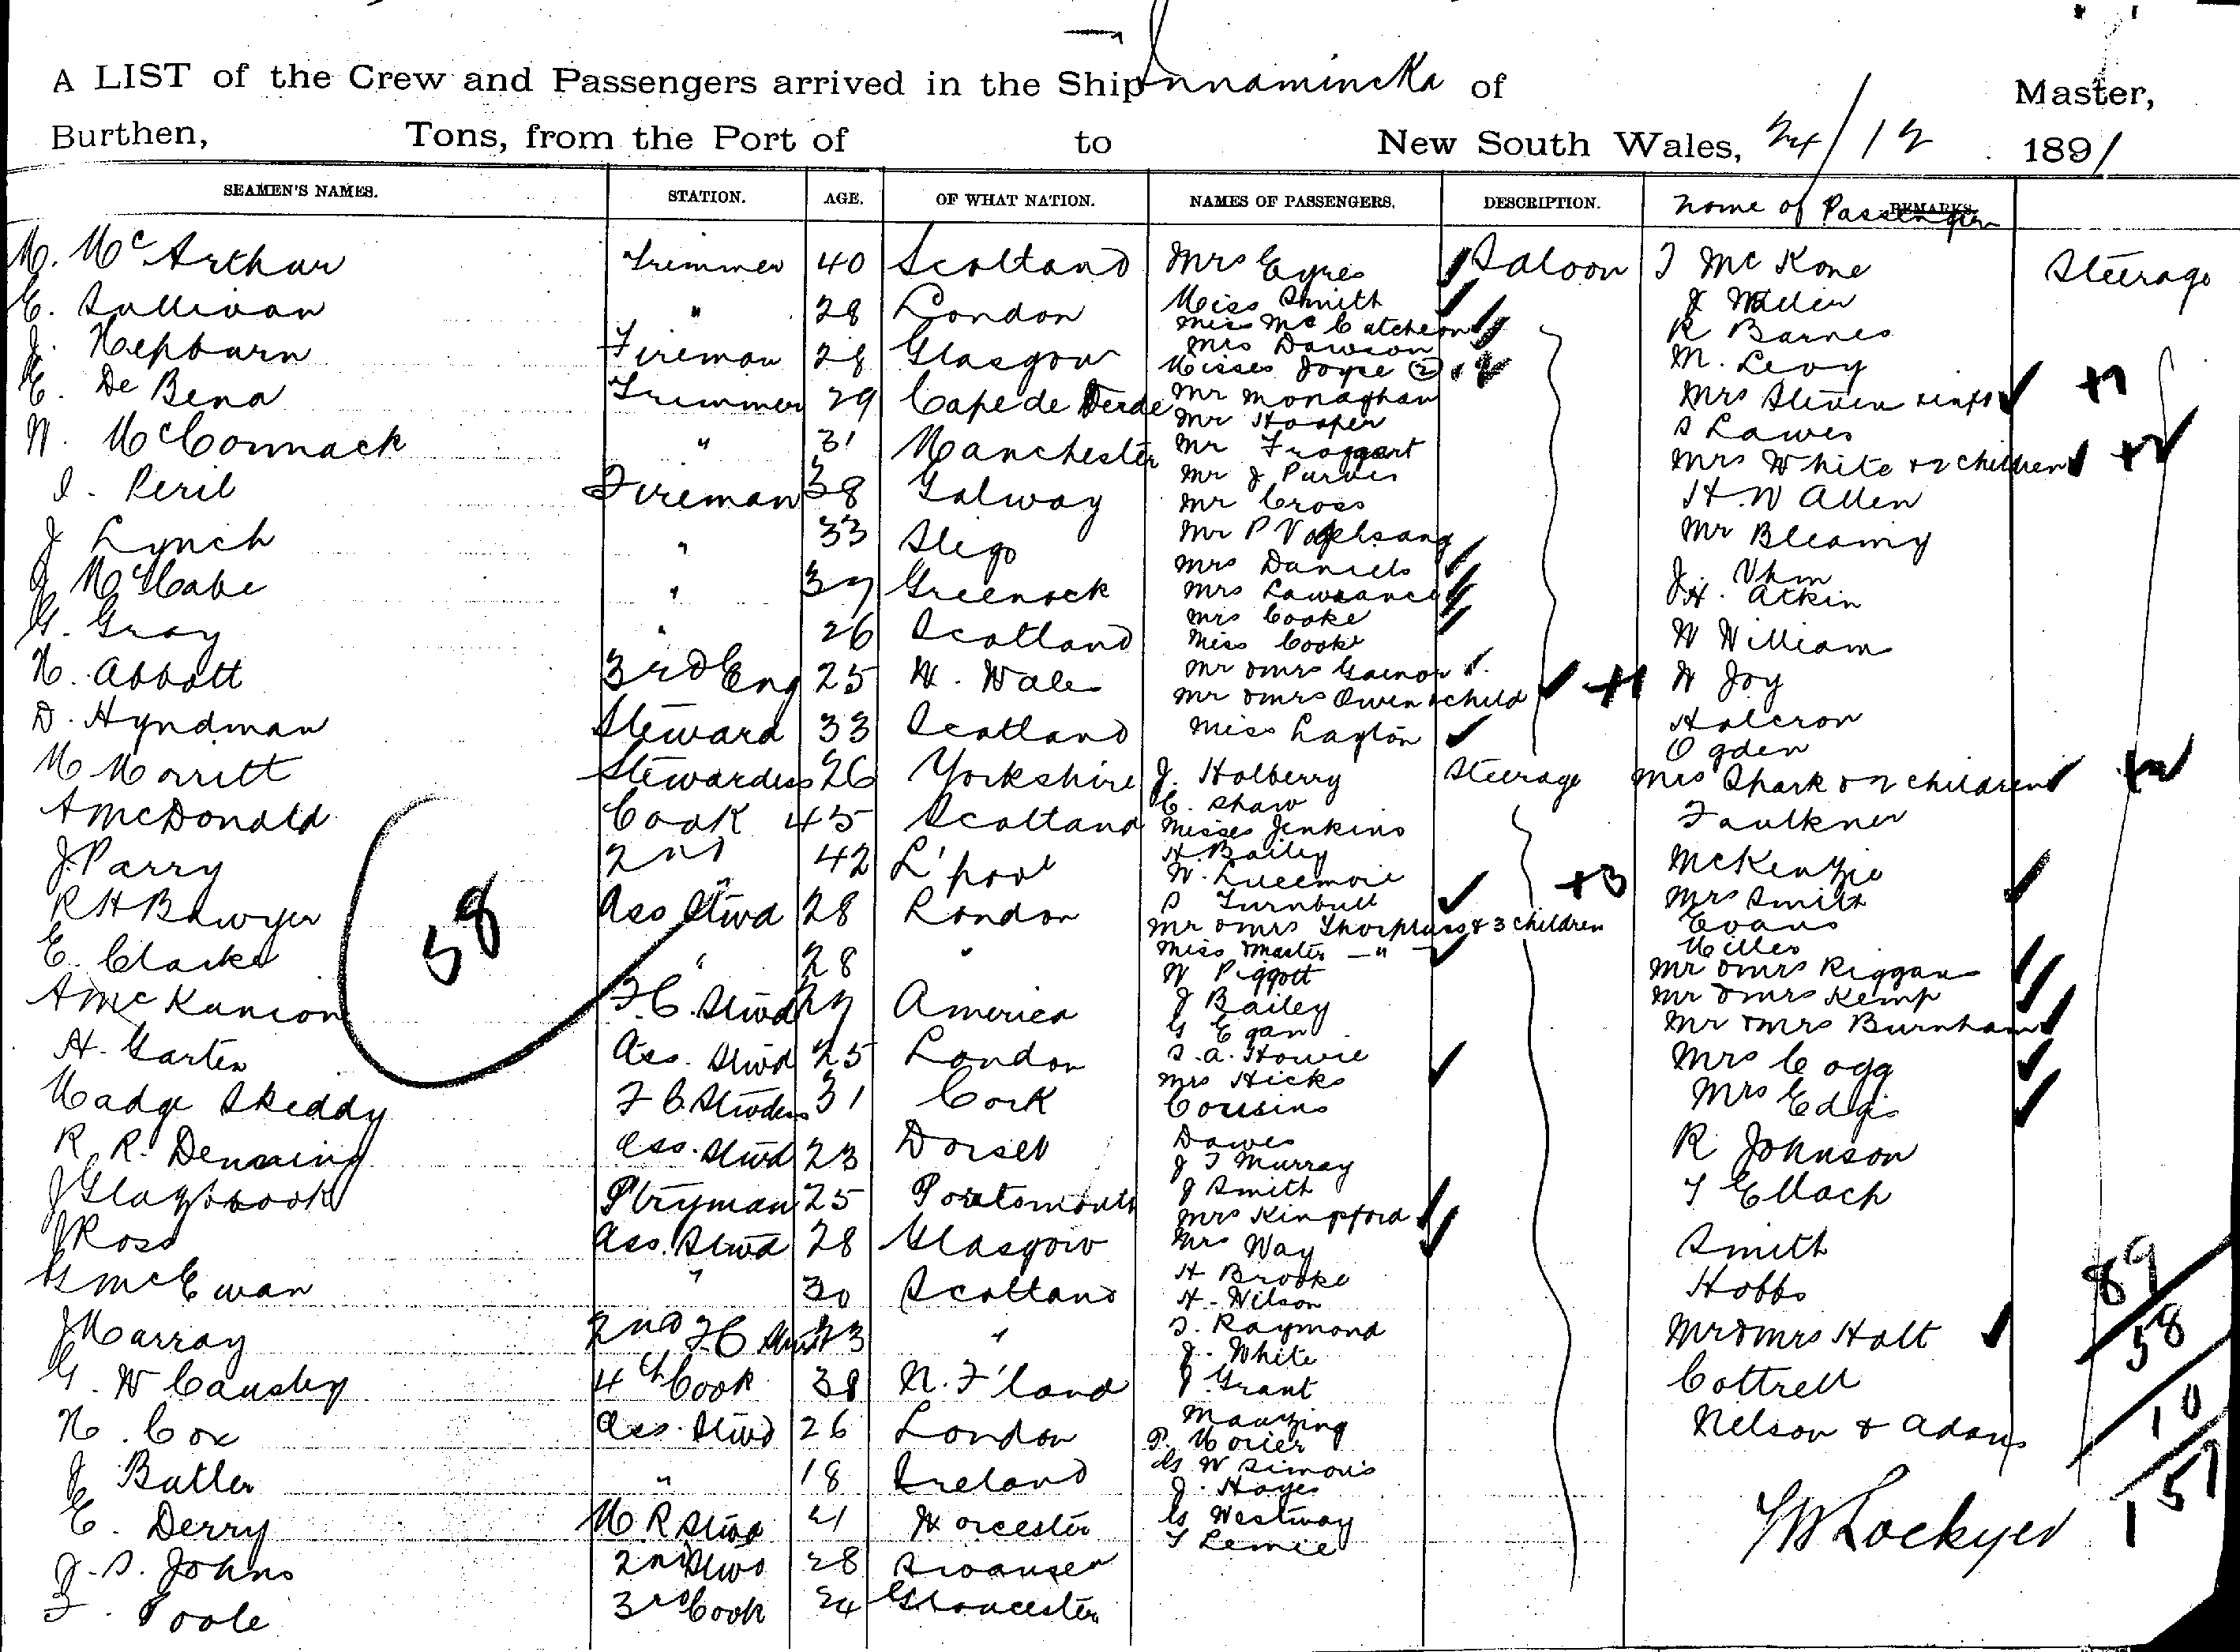 A LIST of the Crew and Passengers arrived in the Ship Innamincka of Master,
Burthen, Tons, from the Port of to New South Wales, 24/12 1891
SEAMEN'S NAMES. STATION. AGE. OF WHAT NATION. NAMES OF PASSENGERS. DESCRIPTION. Name of Passengers REMARKS
M. McArthur Trimmer 40 Scotland
E. Sullivan " 28 London
J. Hepburn Fireman 28 Glasgow
E. De Bena Trimmer 29 Cape de Verde
W. McCormack " 31 Manchester
I. Peril Fireman 38 Galway
J Lynch " 33 Sligo
J McCabe " 37 Greenock
G. Gray " 26 Scotland
H. Abbott 3rd Eng 25 N. Wales
D. Hyndman Steward 33 Scotland
M Morritt Stewardess 26 Yorkshire
A McDonald Cook 45 Scotland
J. Parry 2nd " 42 L'pool
R H Bawyer Ass Stwd 28 London
E. Clarke " 28 "
A McKunion F.C. Stwd 27 America
H. Garten Ass. Stwd 25 London
Madge Skeddy F C Stwdess 31 Cork
R. R. Denning Ass. Stwd 23 Dorset
J Glaysbrook Ptryman 25 Portsmouth
J Ross Ass. Stwd 28 Glasgow
G McEwan " 30 Scotland
J Murray 2nd F C Stwd 23 "
G. W Causley 4th Cook 38 N. F'land
H. Cox Ass. Stwd 26 London
J Butler " 18 Ireland
E. Derry M R Stwd 21 Worcester
J. S. Johns 2nd Stwd 28 Swansea
F. Poole 3rd Cook 24 Gloucester
58
Mrs Eyres Saloon
Miss Smith
Miss McCutcheon
Mrs Dawson
Misses Joyce (2)
Mr Monaghan
Mr Hooper
Mr Froggart
Mr J Purves
Mr Cross
Mr P
Mrs Daniels
Mrs Lawrance
Mrs Cooke
Miss Cooke
Mr & Mrs Gainor
Mr & Mrs Owen & child +1
Miss Layton
J. Holberry Steerage
C. Shaw
Misses Jenkins
H. Bailey
W. Lucemore
S Turnbull +3
Mr & Mrs & 3 children
Miss & Master - " -
W Piggott
J Bailey
G Egan
S. A. Howie
Mrs Hicks
Cousins
Dawes
J T Murray
J Smith
Mrs Kingsford
Mrs Way
H Brooke
H. Wilson
S. Raymond
J. White
J Grant
Manning
P. Morier
G W Simons
J. Hayes
G Westway
T Lemie
T McKone Steerage
J
R Barnes
M. Levy
Mrs Steven & infs +1
S Lawes
Mrs White & 2 children +2
H. W Allen
Mr Bleamy
J. Vhm
J H. Atkin
W William
W Joy
Halcron
Ogden
Mrs Shark & 2 children +2
Faulkner
McKenzie
Mrs Smith
Evans
Miller
Mr & Mrs Riggan
Mr & Mrs Kemp
Mr & Mrs Burnham
Mrs Cogg
Mrs Edgis
R Johnson
T Ellach
Smith
Hobbs
Mr & Mrs Holt
Cottrell
Nelson & Adams
89
58
10
157
Lockyer